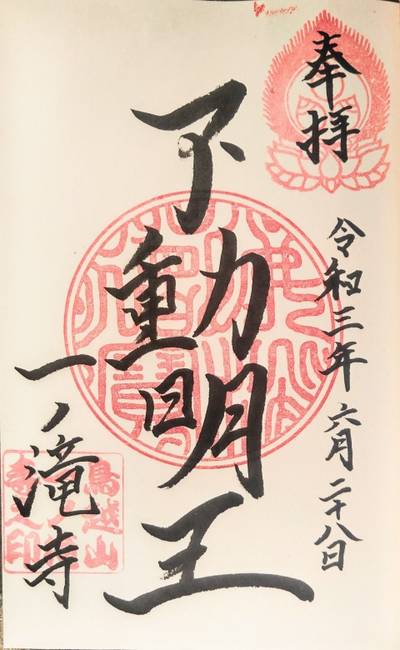 奉拝
令和三年 六月二十八日
不動明王
一ノ滝寺
鳥越山